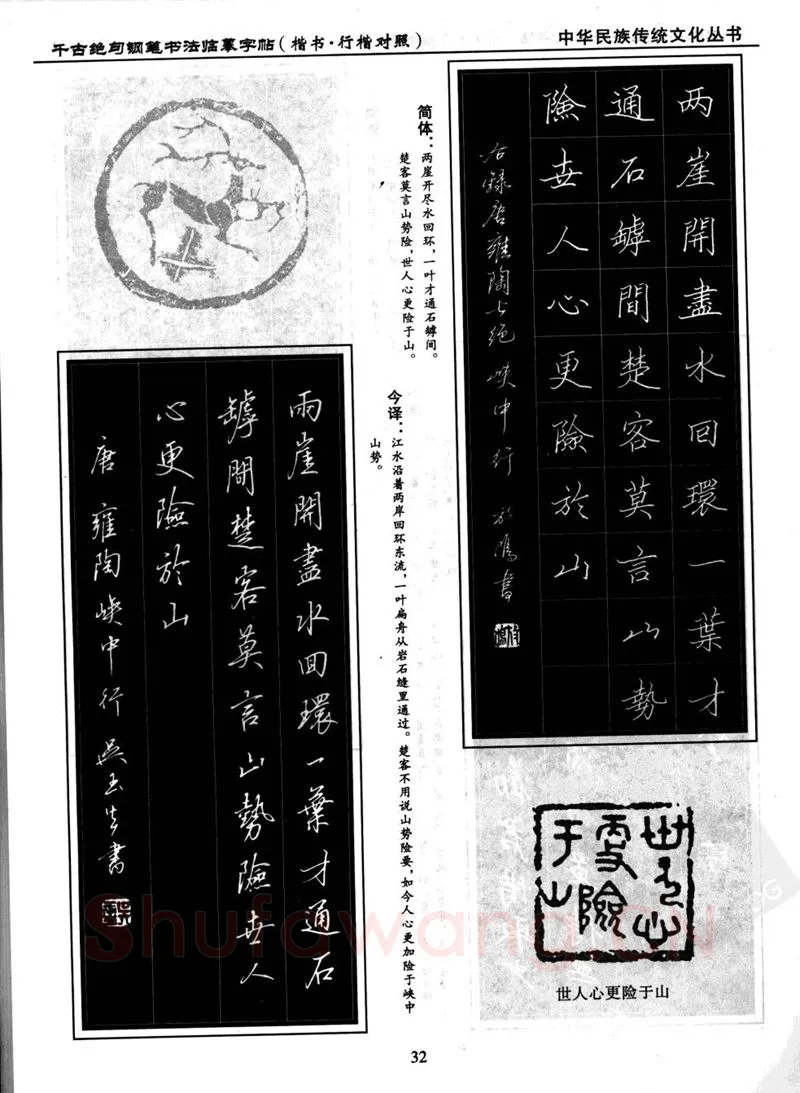 千古绝句钢笔书法临摹字帖(楷书·行楷对照)
中华民族传统文化丛书
两崖開盡水回環一葉才
通石罅間楚客莫言山勢
險世人心更險於山
右録唐雍陶七绝 峡中行
简体:两崖开尽水回环,一叶才通石罅间。
楚客莫言山势险,世人心更险于山。
今译:江水沿着两岸回环东流,一叶扁舟从岩石缝里通过。楚客不用说山势险要,如今人心更加险于峡中
山势。
雨崖開盡水回環一葉才通石
罅間楚客莫言山勢險世人
心更險於山
唐 雍陶 峡中行 吴玉生書
世人心更险于山
世人心更險于山
Shufawang.CN
32